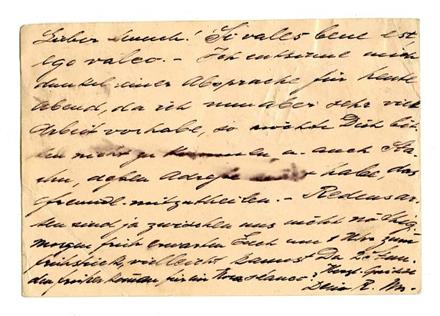 Lieber ! Si vales bene est
ego valeo. – Ich entsinne mich
dunkel einer Absprache für heute
abend, da ich nun aber sehr viel
Arbeit vorhabe, so möchte Dich bit-
ten nicht zu kommen, u. auch
, dessen Adresse nicht habe, das
freundl. mitzutheilen. – Redensar-
ten sind ja zwischen uns nicht
morgen früh erwarten Euch um Uhr zum
Frühstück, vielleicht kannst Du
früher kommen für ein
Dein R. M.